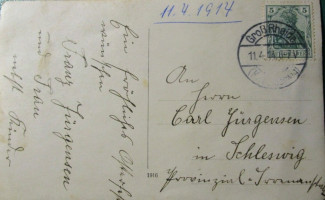 11.4.1914
Ein fröhliches Osterfest
wünschen
Franz Jürgensen
und Frau
nebst Kinder
5 5
11.4.14
An
Herrn
Carl Jürgensen
in Schleswig
Provinzial-Irrenanstalt